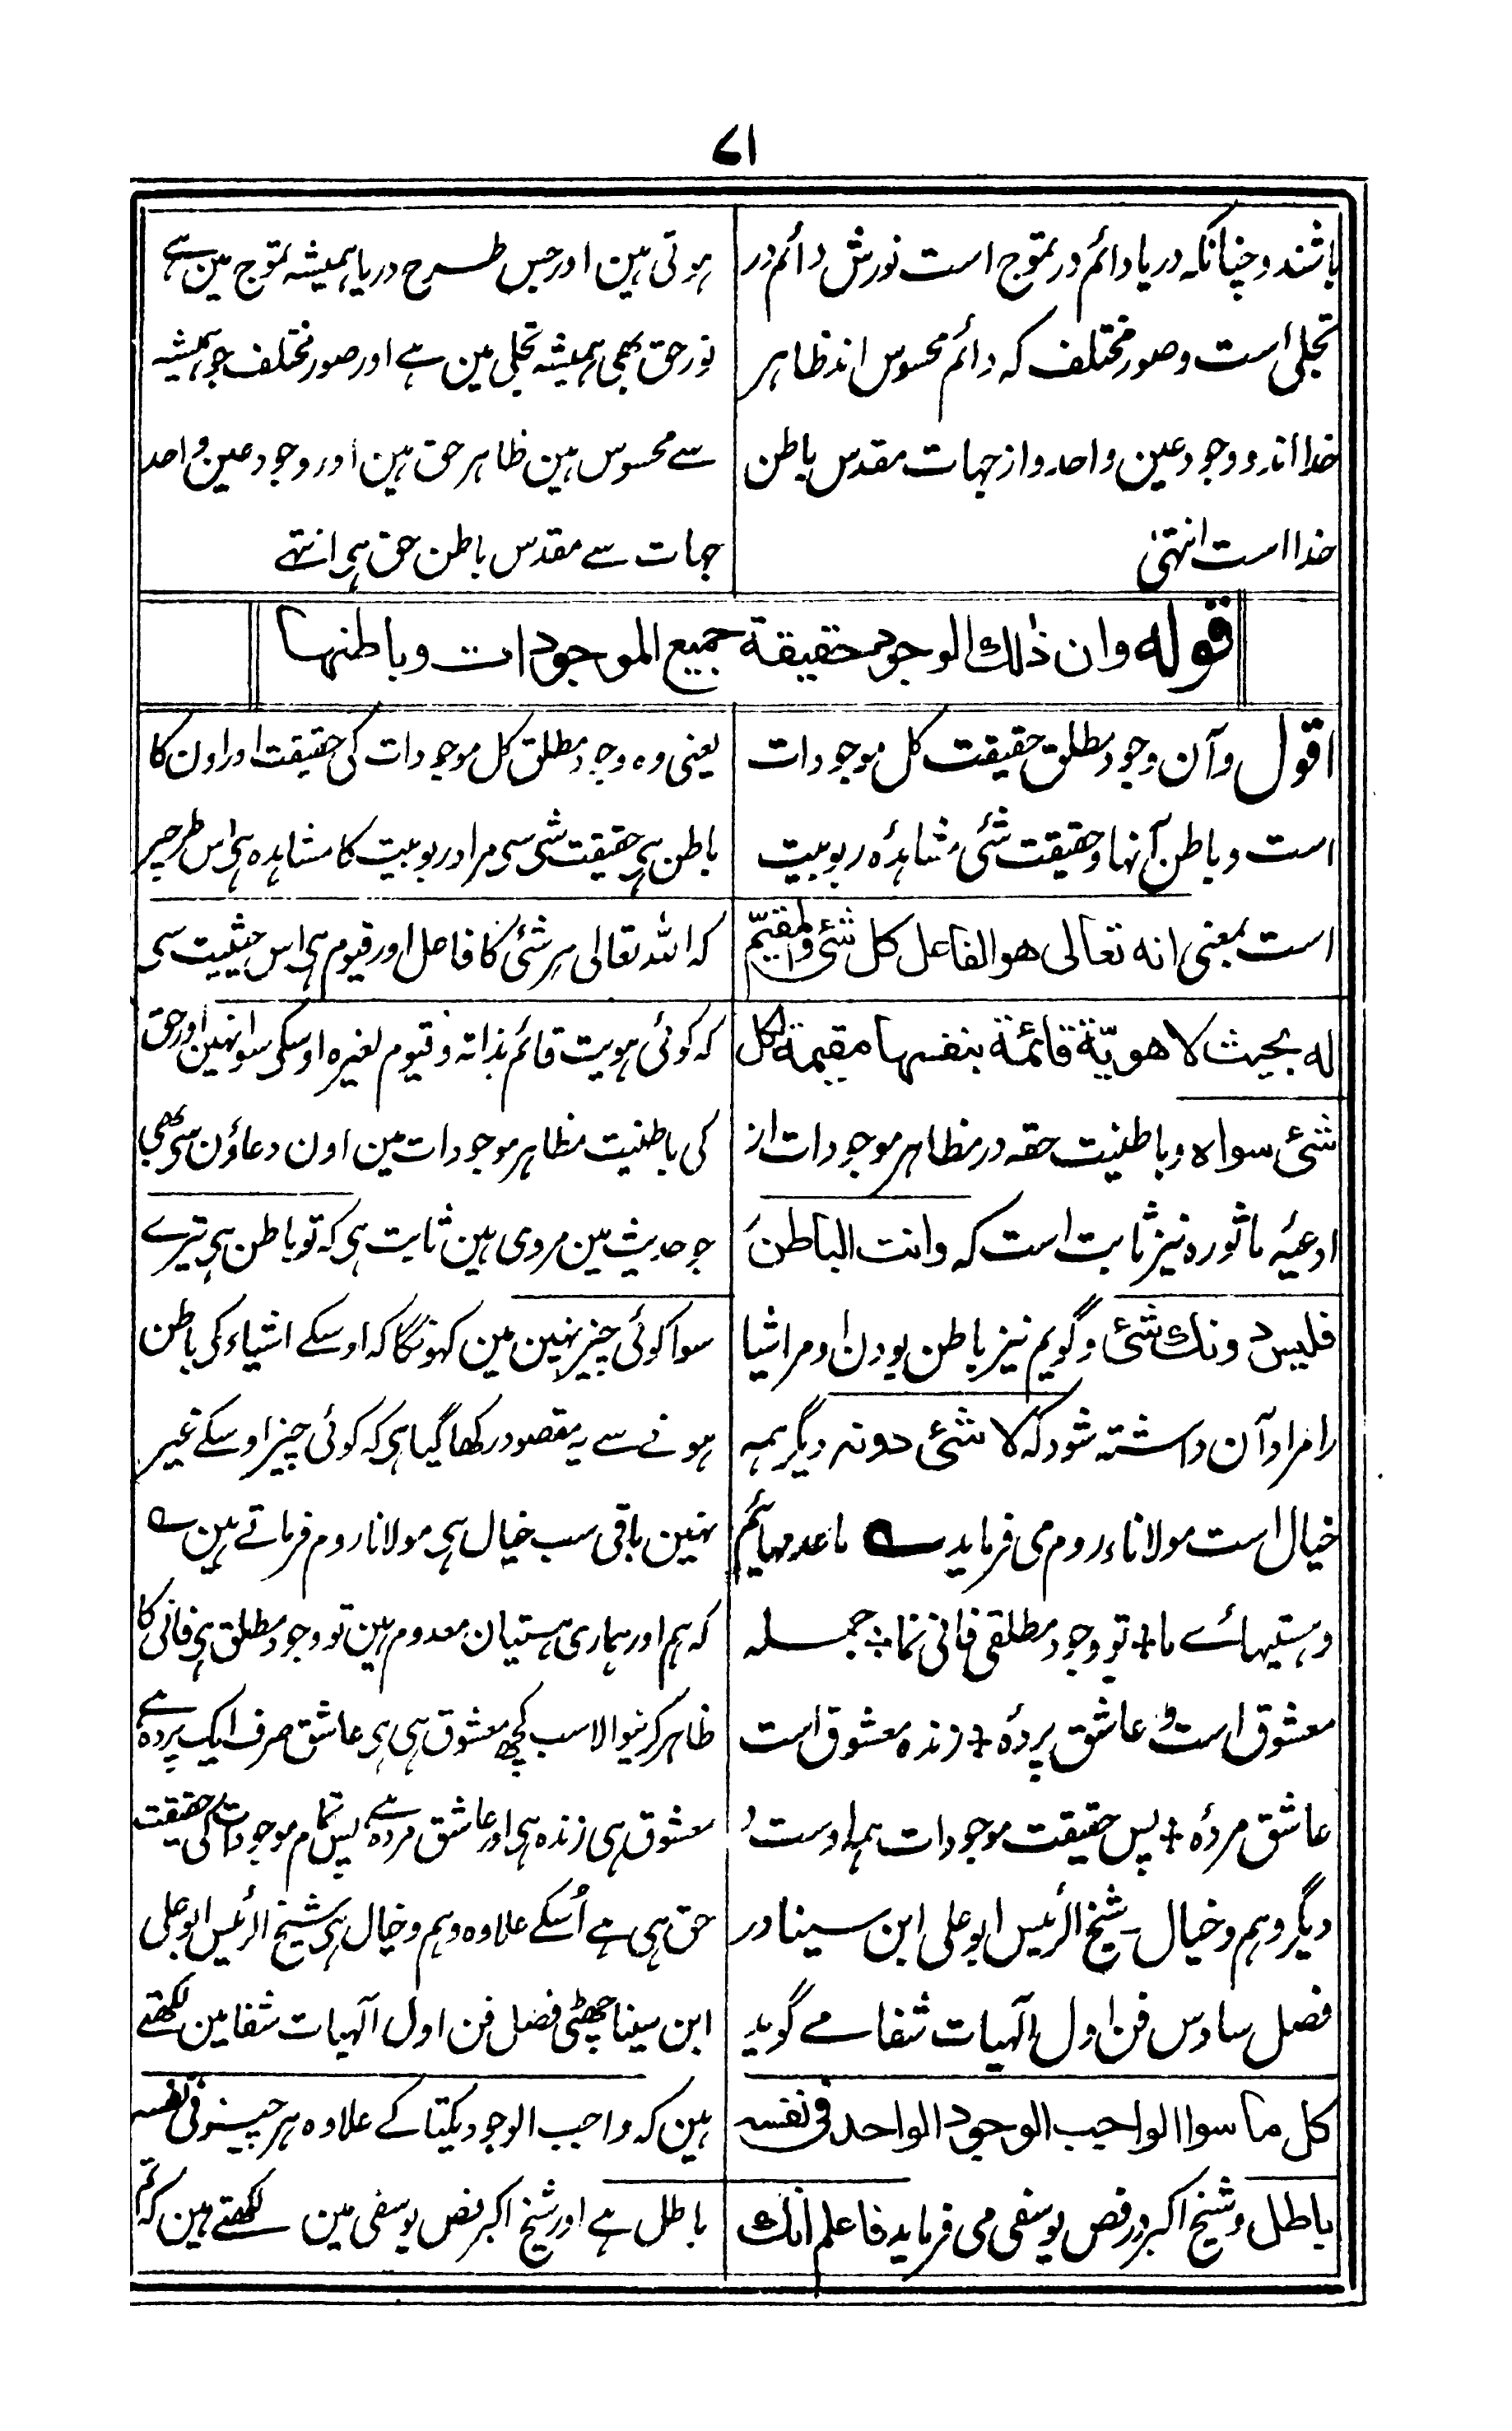 ۷۱
باشند و چنانکہ دریا دائم در تموج است نورش دائم در
تجلی است و صور مختلف کہ دائم محسوس اند ظاہر
خدا اند و وجود عین واحد و از جہات مقدس باطن
خدا است انتہیٰ
ہوتی ہین اور جس طرح دریا ہمیشہ تموج مین ہے
نور حق بھی ہمیشہ تجلی مین ہے اور صور مختلف جو ہمیشہ
سے محسوس ہین ظاہر حق ہین اور وجود عین واحد
جہات سے مقدس باطن حق ہی انتہے
قوله وان ذلك الوجود حقيقة جميع الموجودات وباطنها
اقول و آن وجود مطلق حقیقت کل موجودات
است و باطن آنها و حقیقت شئی مشاہدۂ ربوبیت
است بمعنی انه تعالی هو الفاعل كل شئ والمقيم
له بحيث لا هويّة قائمة بنفسها مقيمة لكل
شئ سواه و باطنیت حقه در مظاہر موجودات از
ادعیۂ ماثورہ نیز ثابت است کہ وانت الباطن
فليس دونك شئ و گویم نیز باطن بودن او مر اشیا
را مراد آن داشتہ شود کہ لا شئ دونه دیگر ہمہ
خیال است مولاناء روم می فرماید ؎ ما عدمہائیم
و ہستیہائے ما ÷ تو وجود مطلقی فانی نما ÷ جملہ
معشوق است و عاشق پردۂ ÷ زندہ معشوق است
عاشق مردۂ ÷ پس حقیقت موجودات ہمہ اوست و
دیگر وہم و خیال ۔ شیخ الرئیس ابو علی ابن سینا در
فصل سادس فن اول الٓہیات شفا مے گوید
كل ما سوا الواجب الوجود الواحد فی نفسه
باطل و شیخ اکبر در فص یوسفی می فرماید فاعلم انك
یعنی وہ وجود مطلق کل موجودات کی حقیقت اور اون کا
باطن ہی حقیقت شی سی مراد ربوبیت کا مشاہدہ ہی اس طرح پر
کہ اللہ تعالی ہر شئ کا فاعل اور قیوم ہی اس حیثیت سی
کہ کوئی ہویت قائم بذاتہ و قیوم لغیرہ اوسکی سوا نہین اور حق
کی باطنیت مظاہر موجودات مین اون دعاؤن سی بھی
جو حدیث مین مروی ہین ثابت ہی کہ تو باطن ہی تیرے
سوا کوئی چیز نہین مین کہونگا کہ اوسکے اشیاء کی باطن
ہونے سے یہ مقصود رکھا گیا ہی کہ کوئی چیز اوسکے غیر
نہین باقی سب خیال ہی مولانا روم فرماتے ہین ؎
کہ ہم اور ہماری ہستیان معدوم ہین تو وجود مطلق ہی فانی کا
ظاہر کرنیوالا سب کچھ معشوق ہی ہی عاشق صرف ایک پردہ ہے
معشوق ہی زندہ ہی اور عاشق مردہ ہے پس تمام موجودات کی حقیقت
حق ہی ہے اُسکے علاوہ وہم و خیال ہی شیخ الرئیس ابو علی
ابن سینا چھٹی فصل فن اول الٓہیات شفا مین لکھتے
ہین کہ واجب الوجود یکتا کے علاوہ ہر چیز فی نفسہ
باطل ہے اور شیخ اکبر فص یوسفی مین لکھتے ہین کہ تم